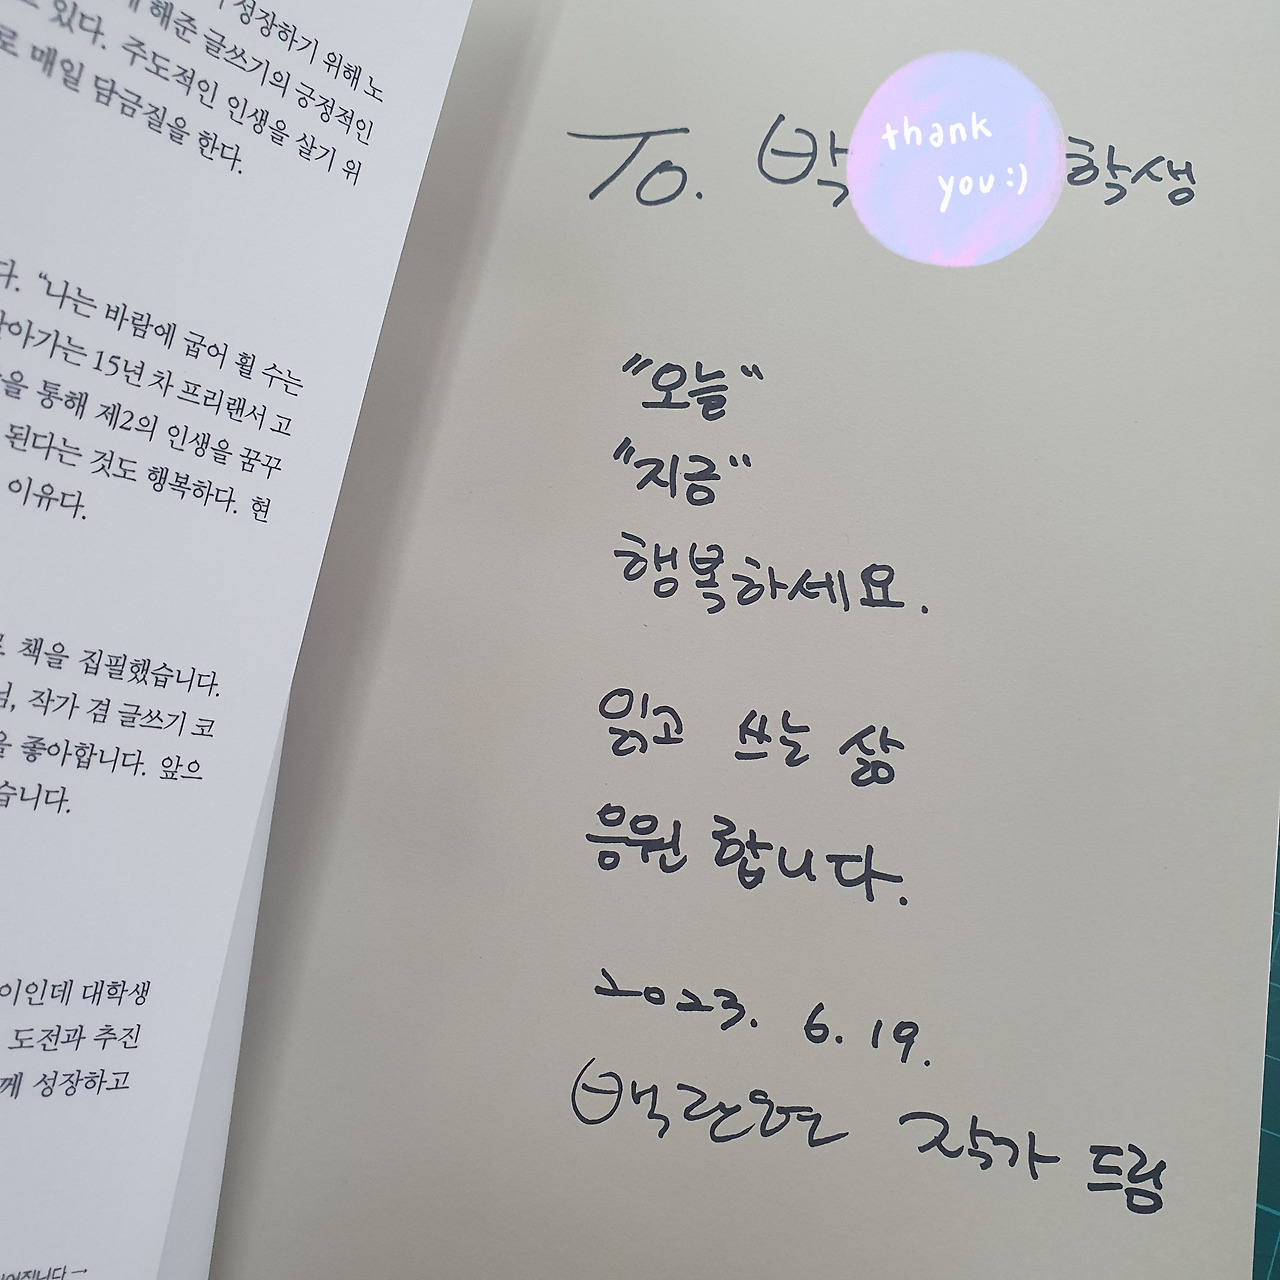 성장하기 위해 노
해준 글쓰기의 긍정적인
있다. 주도적인 인생을 살기 위
로 매일 담금질을 한다.
다. “나는 바람에 굽어 휠 수는
살아가는 15년 차 프리랜서 고
을 통해 제2의 인생을 꿈꾸
된다는 것도 행복하다. 현
이유다.
책을 집필했습니다.
작가 겸 글쓰기 코
을 좋아합니다. 앞으
습니다.
이인데 대학생
도전과 추진
께 성장하고
To. 박 thank you :) 학생
"오늘"
"지금"
행복하세요.
읽고 쓰는 삶
응원 합니다.
2023. 6. 19.
백란현 작가 드림